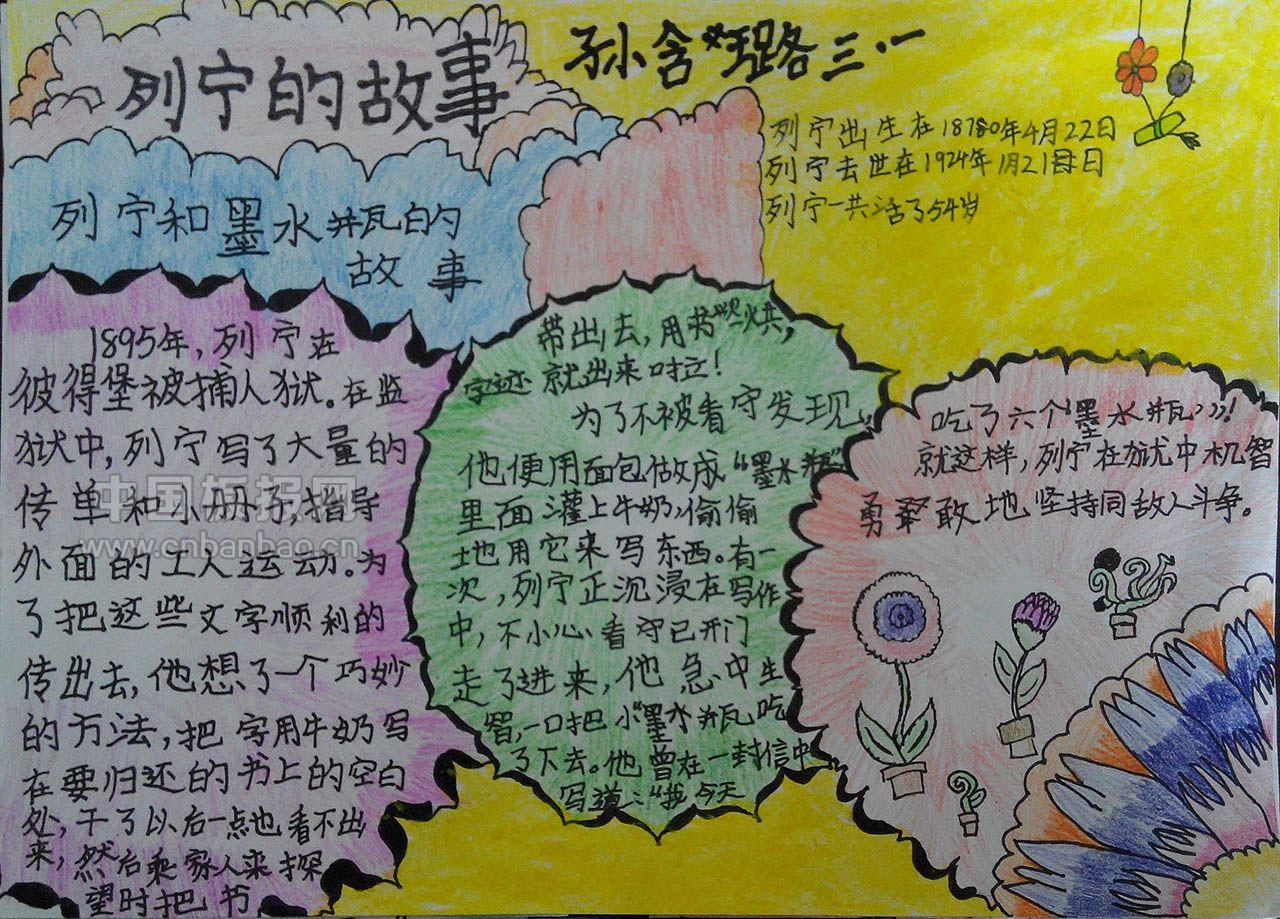 列宁的故事
孙含璐三.一
列宁出生在1870年4月22日
列宁去世在1924年1月21日
列宁一共活了54岁
列宁和墨水瓶的
故事
1895年，列宁在
彼得堡被捕人狱。在监
狱中，列宁写了大量的
传单和小册子，指导
外面的工人运动。为
了把这些文字顺利的
传出去，他想了一个巧妙
的方法，把字用牛奶写
在要归还的书上的空白
处，干了以后一点也看不出
来，然后乘家人来探
望时把书
带出去，用书
字迹就出来啦！
为了不被看守发现，
他便用面包做成“墨水瓶”
里面灌上牛奶，偷偷
地用它来写东西。有一
次，列宁正沉浸在写作
中，不小心看守已开门
走了进来，他急中生
智，一口把小“墨水瓶吃
了下去。他曾在一封信中
写道：“我今天
吃了六个“墨水瓶”！
就这样，列宁在狱中机智
勇敢地坚持同敌人斗争。
中国板报网
www.cnbanbao.cn